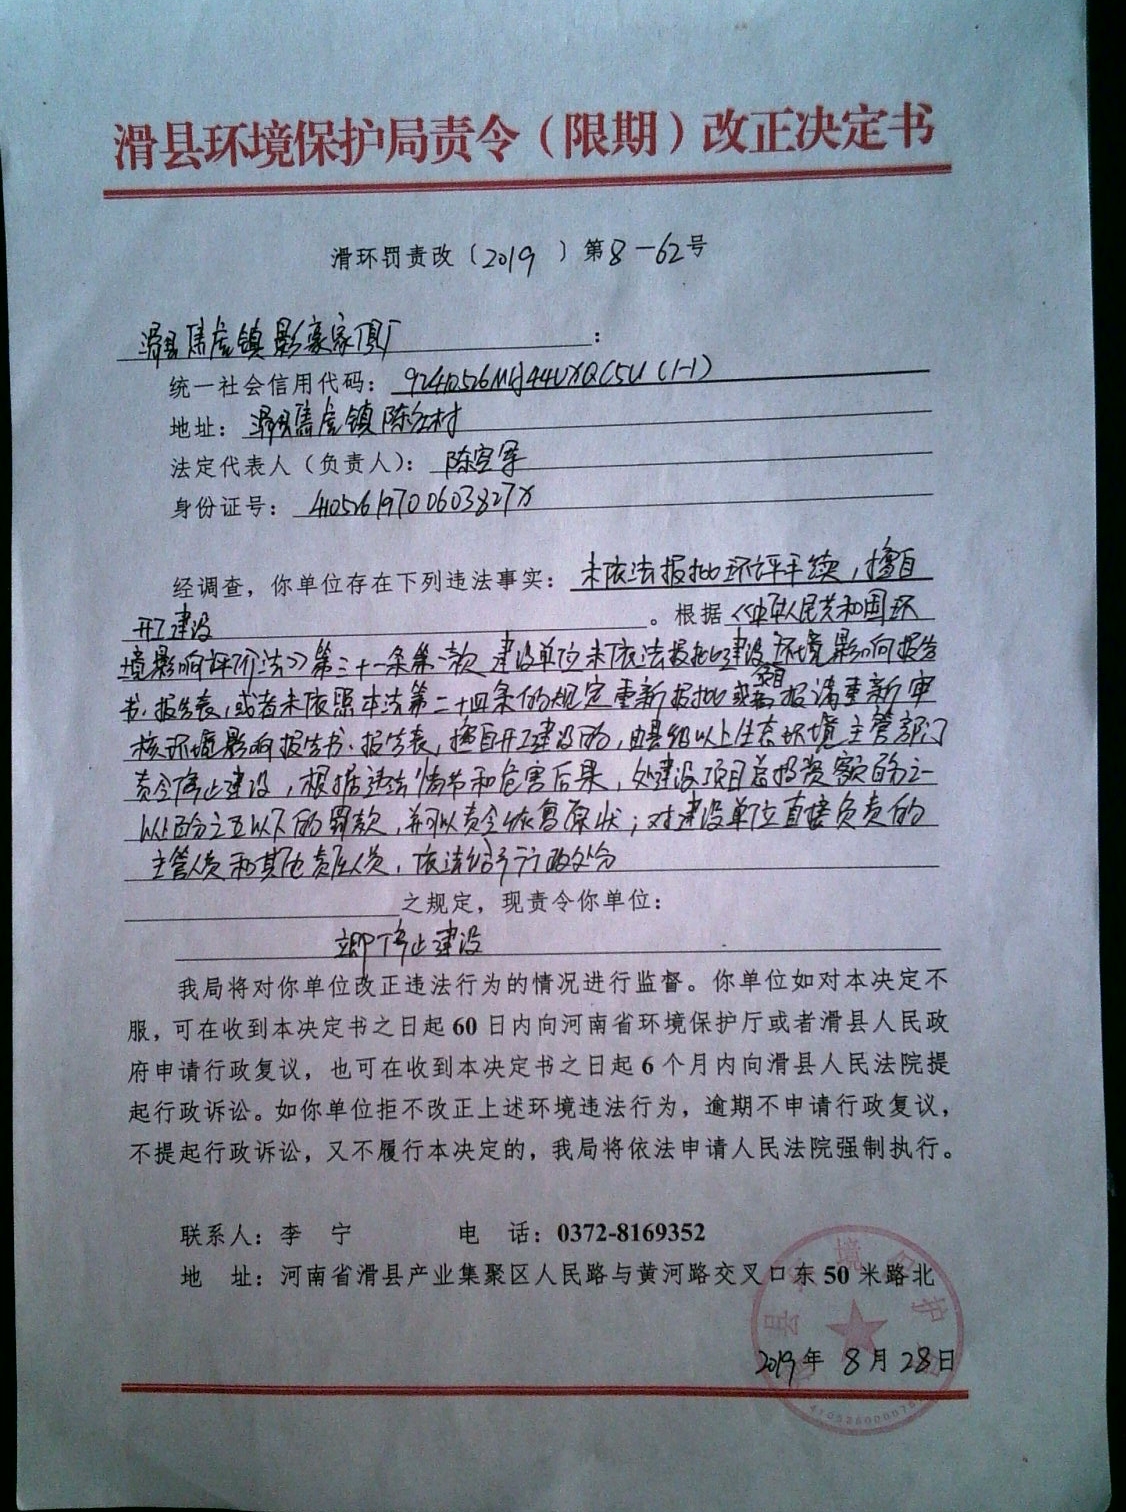 滑县环境保护局责令（限期）改正决定书
滑环罚责改〔2019 〕第8-62号
滑县焦虎镇影豪家俱厂：
统一社会信用代码：92410526MJ44UXQC5U（1-1）
地址：滑县焦虎镇陈公村
法定代表人（负责人）：陈宝军
身份证号：41052619700603827X
经调查，你单位存在下列违法事实：未依法报批环评手续，擅自
开工建设。根据《中华人民共和国环
境影响评价法》第三十一条第一款 建设单位未依法报批建设环境影响报告
书、报告表，或者未依照本法第二十四条的规定重新报批或报请重新审
核环境影响报告书、报告表，擅自开工建设的，由县级以上生态环境主管部门
责令停止建设，根据违法情节和危害后果，处建设项目总投资额百分之一
以上百分之五以下的罚款，并可以责令恢复原状；对建设单位直接负责的
主管人员和其他责任人员，依法给予行政处分
之规定，现责令你单位：
立即停止建设
我局将对你单位改正违法行为的情况进行监督。你单位如对本决定不
服，可在收到本决定书之日起 60 日内向河南省环境保护厅或者滑县人民政
府申请行政复议，也可在收到本决定书之日起 6 个月内向滑县人民法院提
起行政诉讼。如你单位拒不改正上述环境违法行为，逾期不申请行政复议，
不提起行政诉讼，又不履行本决定的，我局将依法申请人民法院强制执行。
联系人：李 宁 电 话：0372-8169352
地 址：河南省滑县产业集聚区人民路与黄河路交叉口东 50 米路北
2019年 8月28日